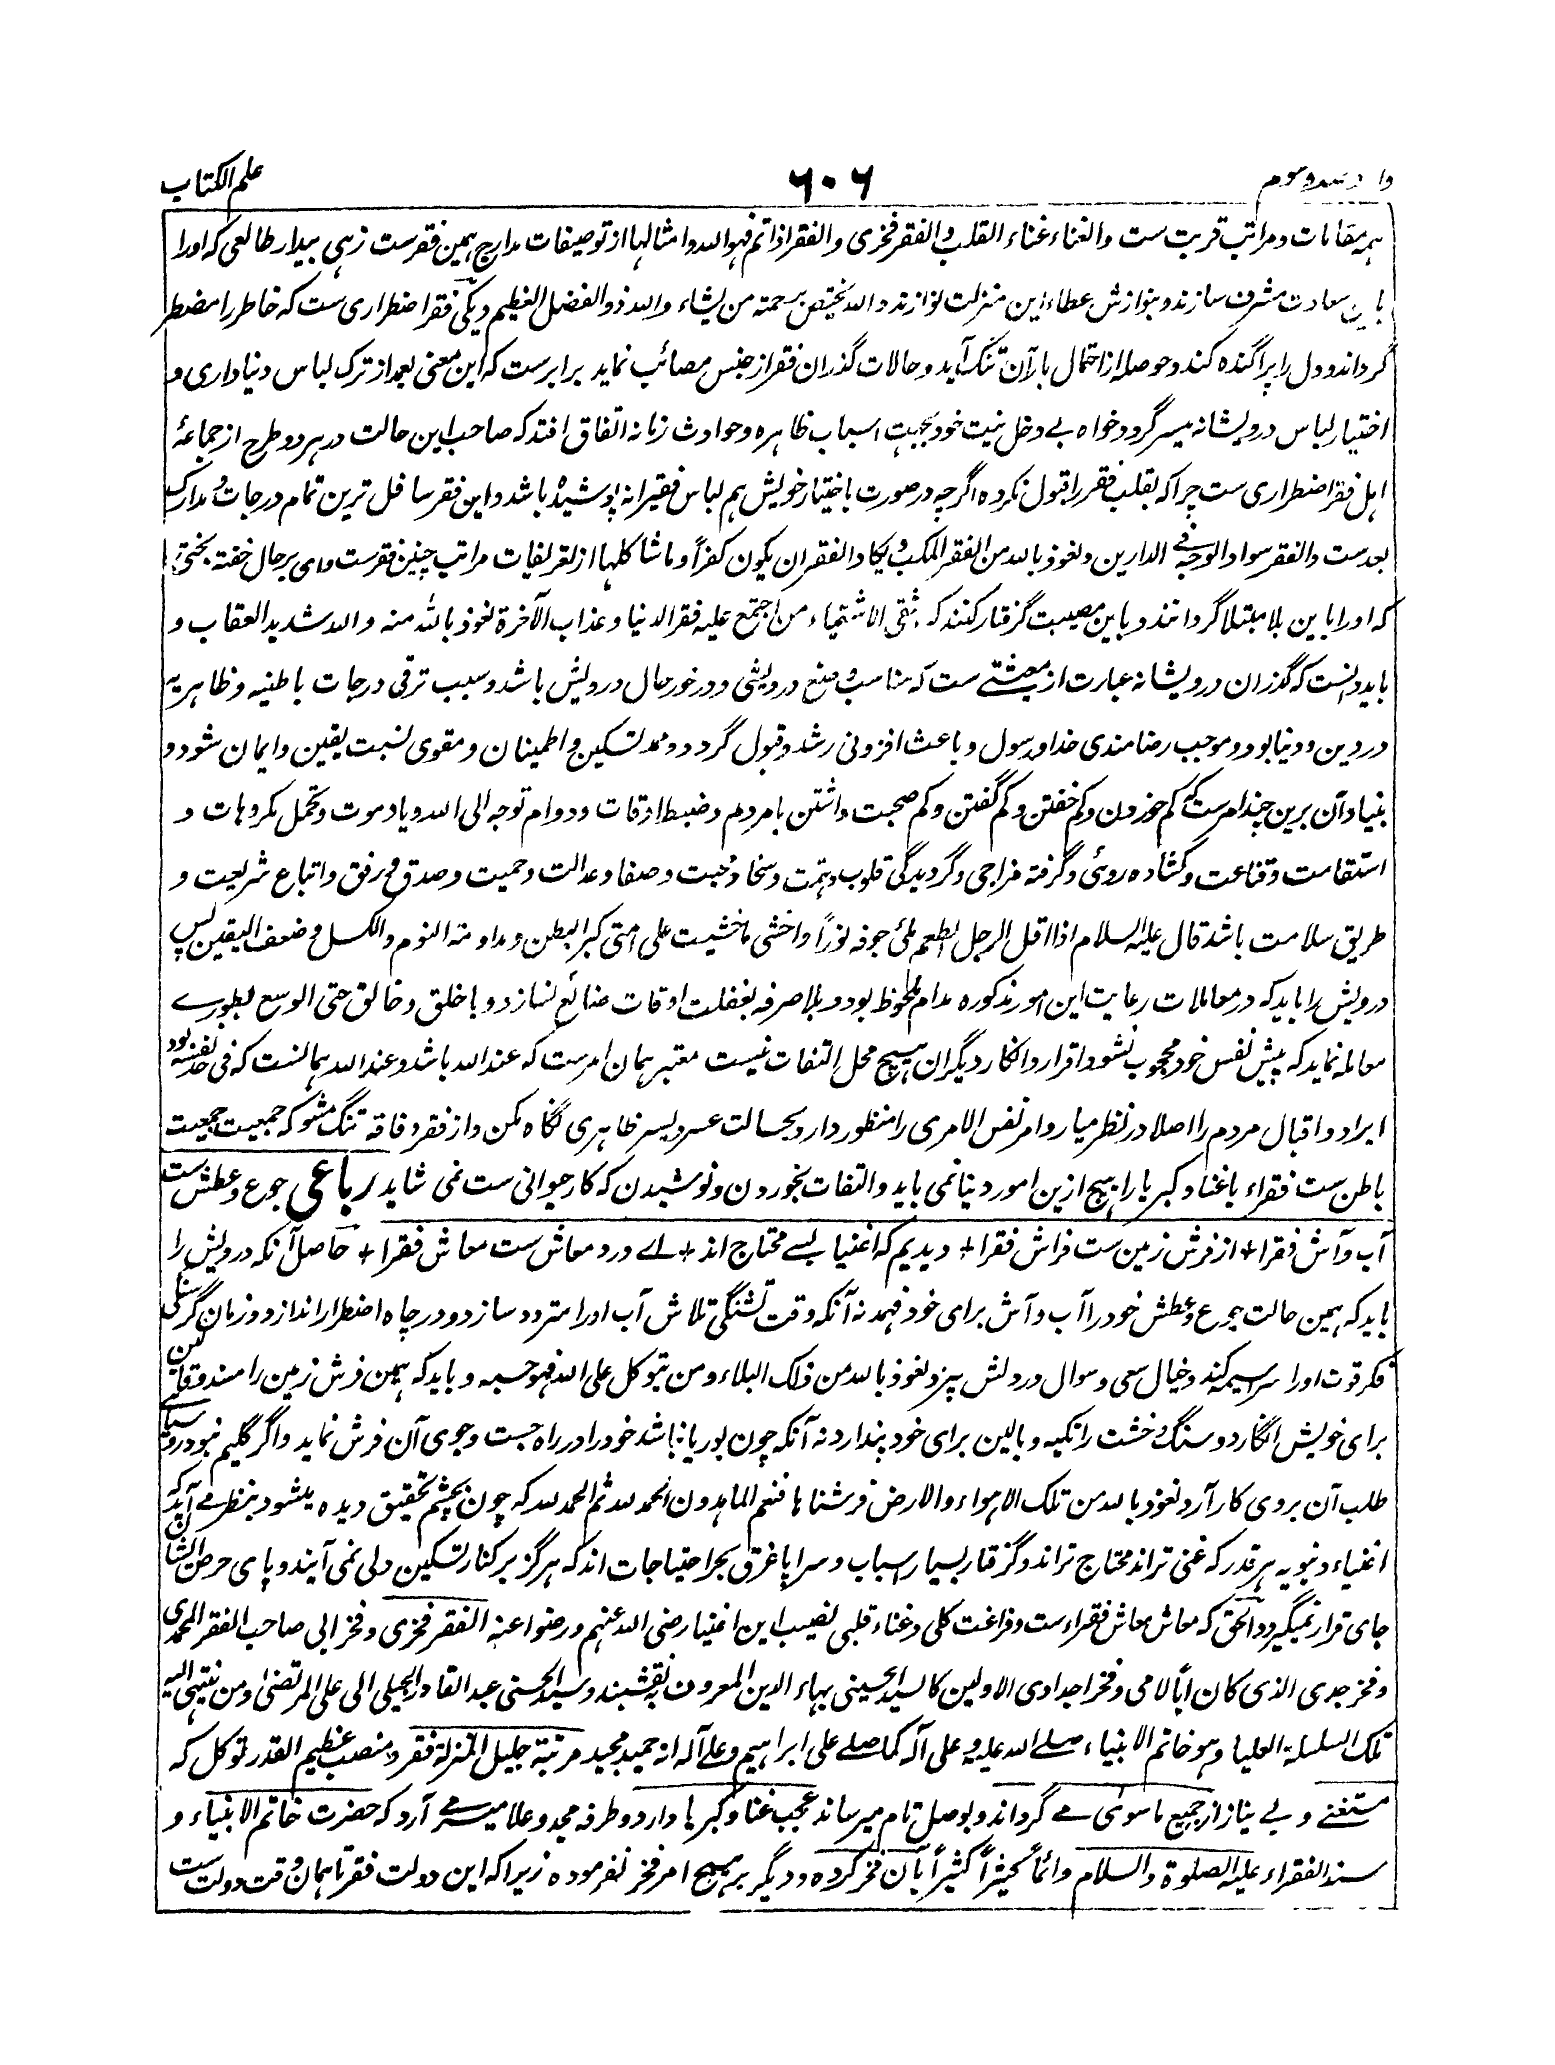 علم الکتاب
۶۰۶
وارد سد و سوم
ہمہ مقامات و مراتب قربت ست والغناء غناء القلب و الفقر فخری والفقر اذا تم فہو اللہ و امثالہا از توصیفات مدارج ہمین فقرست زہی بیدار طالعی کہ او را
باین سعادت مشرف سازند و بنوازش عطاء این منزلت نوازند و اللہ یختص برحمتہ من یشاء واللہ ذو الفضل العظیم دیگی فقر اضطراری ست کہ خاطر را مضطر
گرداند و دل را پراگندہ کند و حوصلہ از احتمال بار آن تنگ آید و حالات گذران فقر از جنس مصائب نماید برابرست کہ این معنی بعد از ترک لباس دنیاداری و
اختیار لباس درویشانہ میسر گردد خواہ بے دخل نیت خود بجہت اسباب ظاہرہ و حوادث زمانہ اتفاق افتد کہ صاحب این حالت در ہر دو طرح از جماعۂ
اہل فقر اضطراری ست چرا کہ بقلب فقر را قبول نکردہ اگرچہ در صورت باختیار خویش ہم لباس فقیرانہ پوشیدہ باشد و این فقر سافل ترین تمام درجات و مدارک
بعدست والفقر سواد الوجہ فی الدارین و نعوذ باللہ من الفقر المکب و یکاد الفقر ان یکون کفراً و ما شاکلہا از تعریفات مراتب چنین فقرست وای بر حال خفتہ بختی
کہ او را باین بلا مبتلا گردانند و باین مصیبت گرفتار کنند کہ شقی الاشقیاء من اجتمع علیہ فقر الدنیا و عذاب الآخرة نعوذ باللہ منہ و اللہ شدید العقاب و
باید دانست کہ گذران درویشانہ عبارت از معیشتے ست کہ مناسب وضع درویشی و درخور حال درویش باشد و سبب ترقی درجات باطنیہ و ظاہریہ
در دین و دنیا بود و موجب رضامندی خدا و رسول و باعث افزونی رشد و قبول گردد و ممد تسکین و اطمینان و مقوی نسبت یقین و ایمان شود و
بنیاد آن برین چند امرست کہ کم خوردن و کم خفتن و کم گفتن و کم صحبت داشتن با مردم و ضبط اوقات و دوام توجہ الی اللہ و یاد موت و تحمل مکروہات و
استقامت و قناعت و کشادہ روئی و گرفتہ مزاجی و گردیدگی قلوب و ہمت و سخا و محبت و صفا و عدالت و حمیت و صدق و رفق و اتباع شریعت و
طریق سلامت باشد قال علیہ السلام اذا اقل الرجل الطعم ملئ جوفہ نوراً و اخشی ما خشیت علی امتی کبر البطن و مداومة النوم والکسل و ضعف الیقین پس
درویش را باید کہ در معاملات رعایت این امور مذکورہ مدام ملحوظ بود و بلا صرفہ بغفلت اوقات ضائع نسازد و با خلق و خالق حتی الوسع بطورے
معاملہ نماید کہ پیش نفس خود محجوب نشود و اقرار و انکار دیگران ہیچ محل التفات نیست معتبر ہمان امرست کہ عند اللہ باشد و عند اللہ ہمانست کہ فی حد نفسہ بود
ایراد و اقبال مردم را اصلا در نظر میار و امر نفس الامری را منظور دار و بحسالت عسر و یسر ظاہری نگاہ مکن و از فقر و فاقہ تنگ مشو کہ جمعیت جمعیت
باطن ست فقراء باغنا و کبریا را ہیچ ازین امور دنیا نمی باید و التفات بخوردن و نوشیدن کہ کار حیوانی ست نمی شاید رباعی جوع و عطش ست
آب و آش فقرا + از فرش زمین ست فراش فقرا + دیدیم کہ اغنیا بسے محتاج اند + اے درد معاش ست معاش فقرا + حاصل آنکہ درویش را
باید کہ ہمین حالت جوع و عطش خود را آب و آش برای خود فہمد نہ آنکہ وقت تشنگی تلاش آب او را متردد سازد و در چاہ اضطرار اندازد و زمان گرسنگی
فکر قوت او را سراسیمہ کند و خیال سعی و سوال در دلش پزد نعوذ باللہ من ذاک البلاء و من یتوکل علی اللہ فہو حسبہ و باید کہ ہمین فرش زمین را مسند و قالین
برای خویش انگارد و سنگ و خشت را تکیہ و بالین برای خود پندارد نہ آنکہ چون بوریا نباشد خود را در راہ جست و جوی آن فرش نماید و اگر گلیم نبود روسیاہے
طلب آن بروی کار آرد نعوذ باللہ من تلک الاہواء والارض فرشناہا فنعم الماہدون الحمد للہ ثم الحمد للہ کہ چون بچشم تحقیق دیدہ میشود بنظر مے آید کہ
اغنیاء دنیویہ ہر قدر کہ غنی تر اند محتاج تر اند و گرفتار بسیار اسباب و سراپا غرق بحر احتیاجات اند کہ ہرگز بر کنار تسکین دلی نمی آیند و پای حرص ایشان
جای قرار نمیگیرد و الحق کہ معاش معاش فقراءست و فراغت کلی و غناء قلبی نصیب این اغنیا رضی اللہ عنہم و رضوا عنہ الفقر فخری و فخر ابی صاحب الفقر المحمدی
و فخر جدی الذی کان اباً لامی و فخر اجدادی الاولین کالسید الحسینی بہاء الدین المعروف بہ نقشبند و سید الحسنی عبد القادر الجیلی الی علی المرتضیٰ و من ینتہی الیہ
تلک السلسلة العلیا و ہو خاتم الانبیاء صلے اللہ علیہ و علی آلہ کما صلے علی ابراہیم و علے آلہ انہ حمید مجید مرتبۂ جلیل المنزلة فقر و منصب عظیم القدر توکل کہ
مستغنے و بے نیاز از جمیع ما سوی مے گرداند و بوصل تام میرساند عجب غنا و کبریا دارد و طرفہ مجد و علا میسر مے آرد کہ حضرت خاتم الانبیاء و
سند الفقراء علیہ الصلوة والسلام دائماً کثیراً کثیراً بآن فخر کردہ و دیگر بر ہیچ امر فخر نفرمودہ زیرا کہ این دولت فقر تا ہمان وقت دولت ست